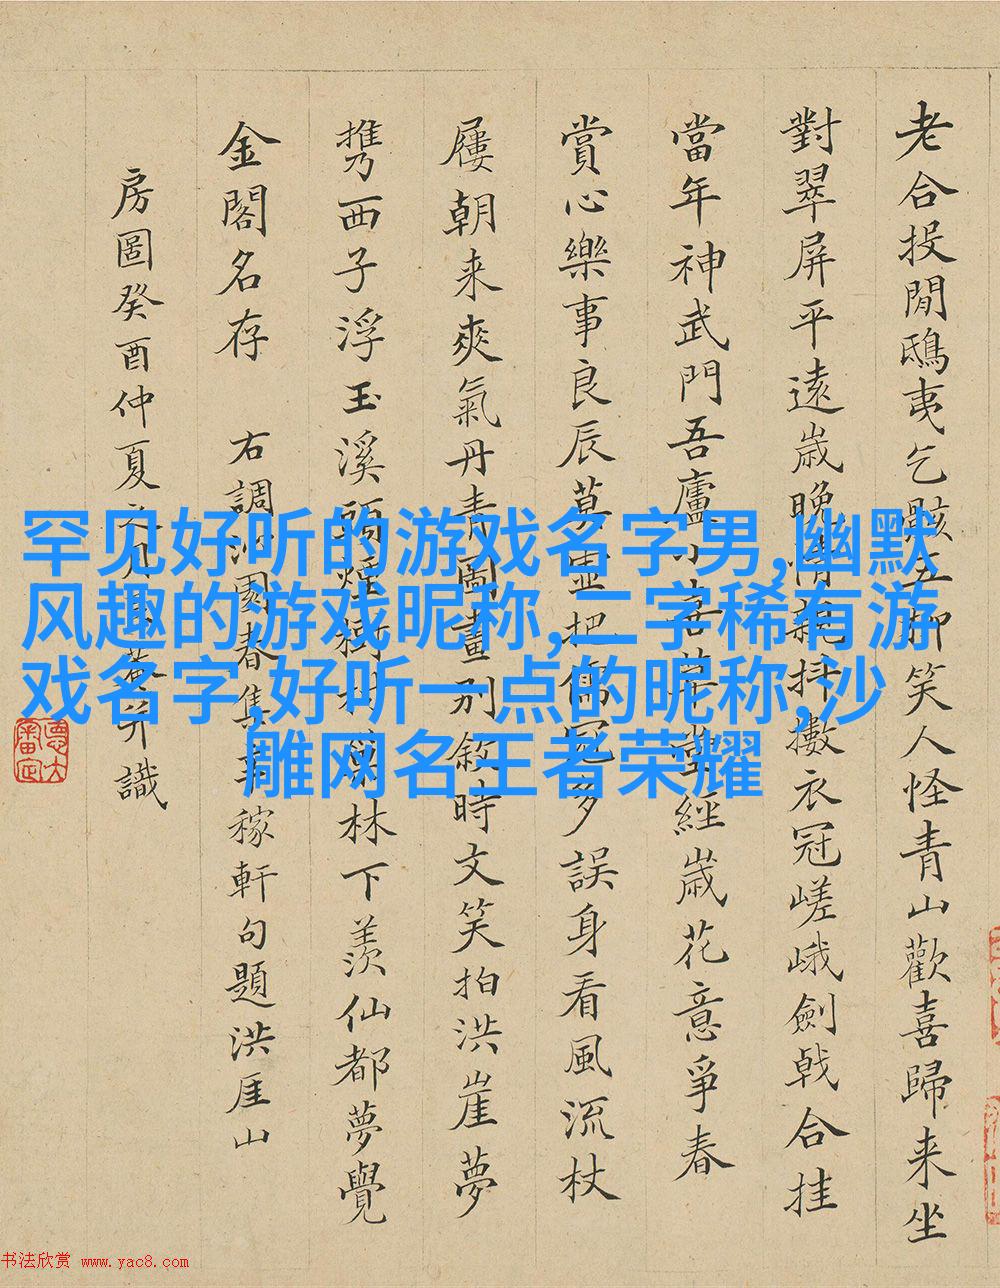 老合投閒鴟夷乞骸五柳笑人怪青山歡喜歸来坐
對翠屏平遠歲晚情親抖擻衣冠嵯峨劍戟合挂
當年神武門吾廬小喜草堂經歲花意爭春
賞心樂事良辰莫虛把儒冠多誤身看風流杖
屨朝来爽氣丹青圖畫別敘時文笑拍洪崖夢
携西子浮玉溪頭煙樹村林下羨仙都夢覺
金閣名存 右調沁園春集辛稼軒句題洪厓山
房圖癸酉仲夏之月并識
罕见好听的游戏名字男,幽默
风趣的游戏昵称,二字稀有游
戏名字,好听一点的昵称,沙
雕网名王者荣耀
书法欣赏 www.yac8.com